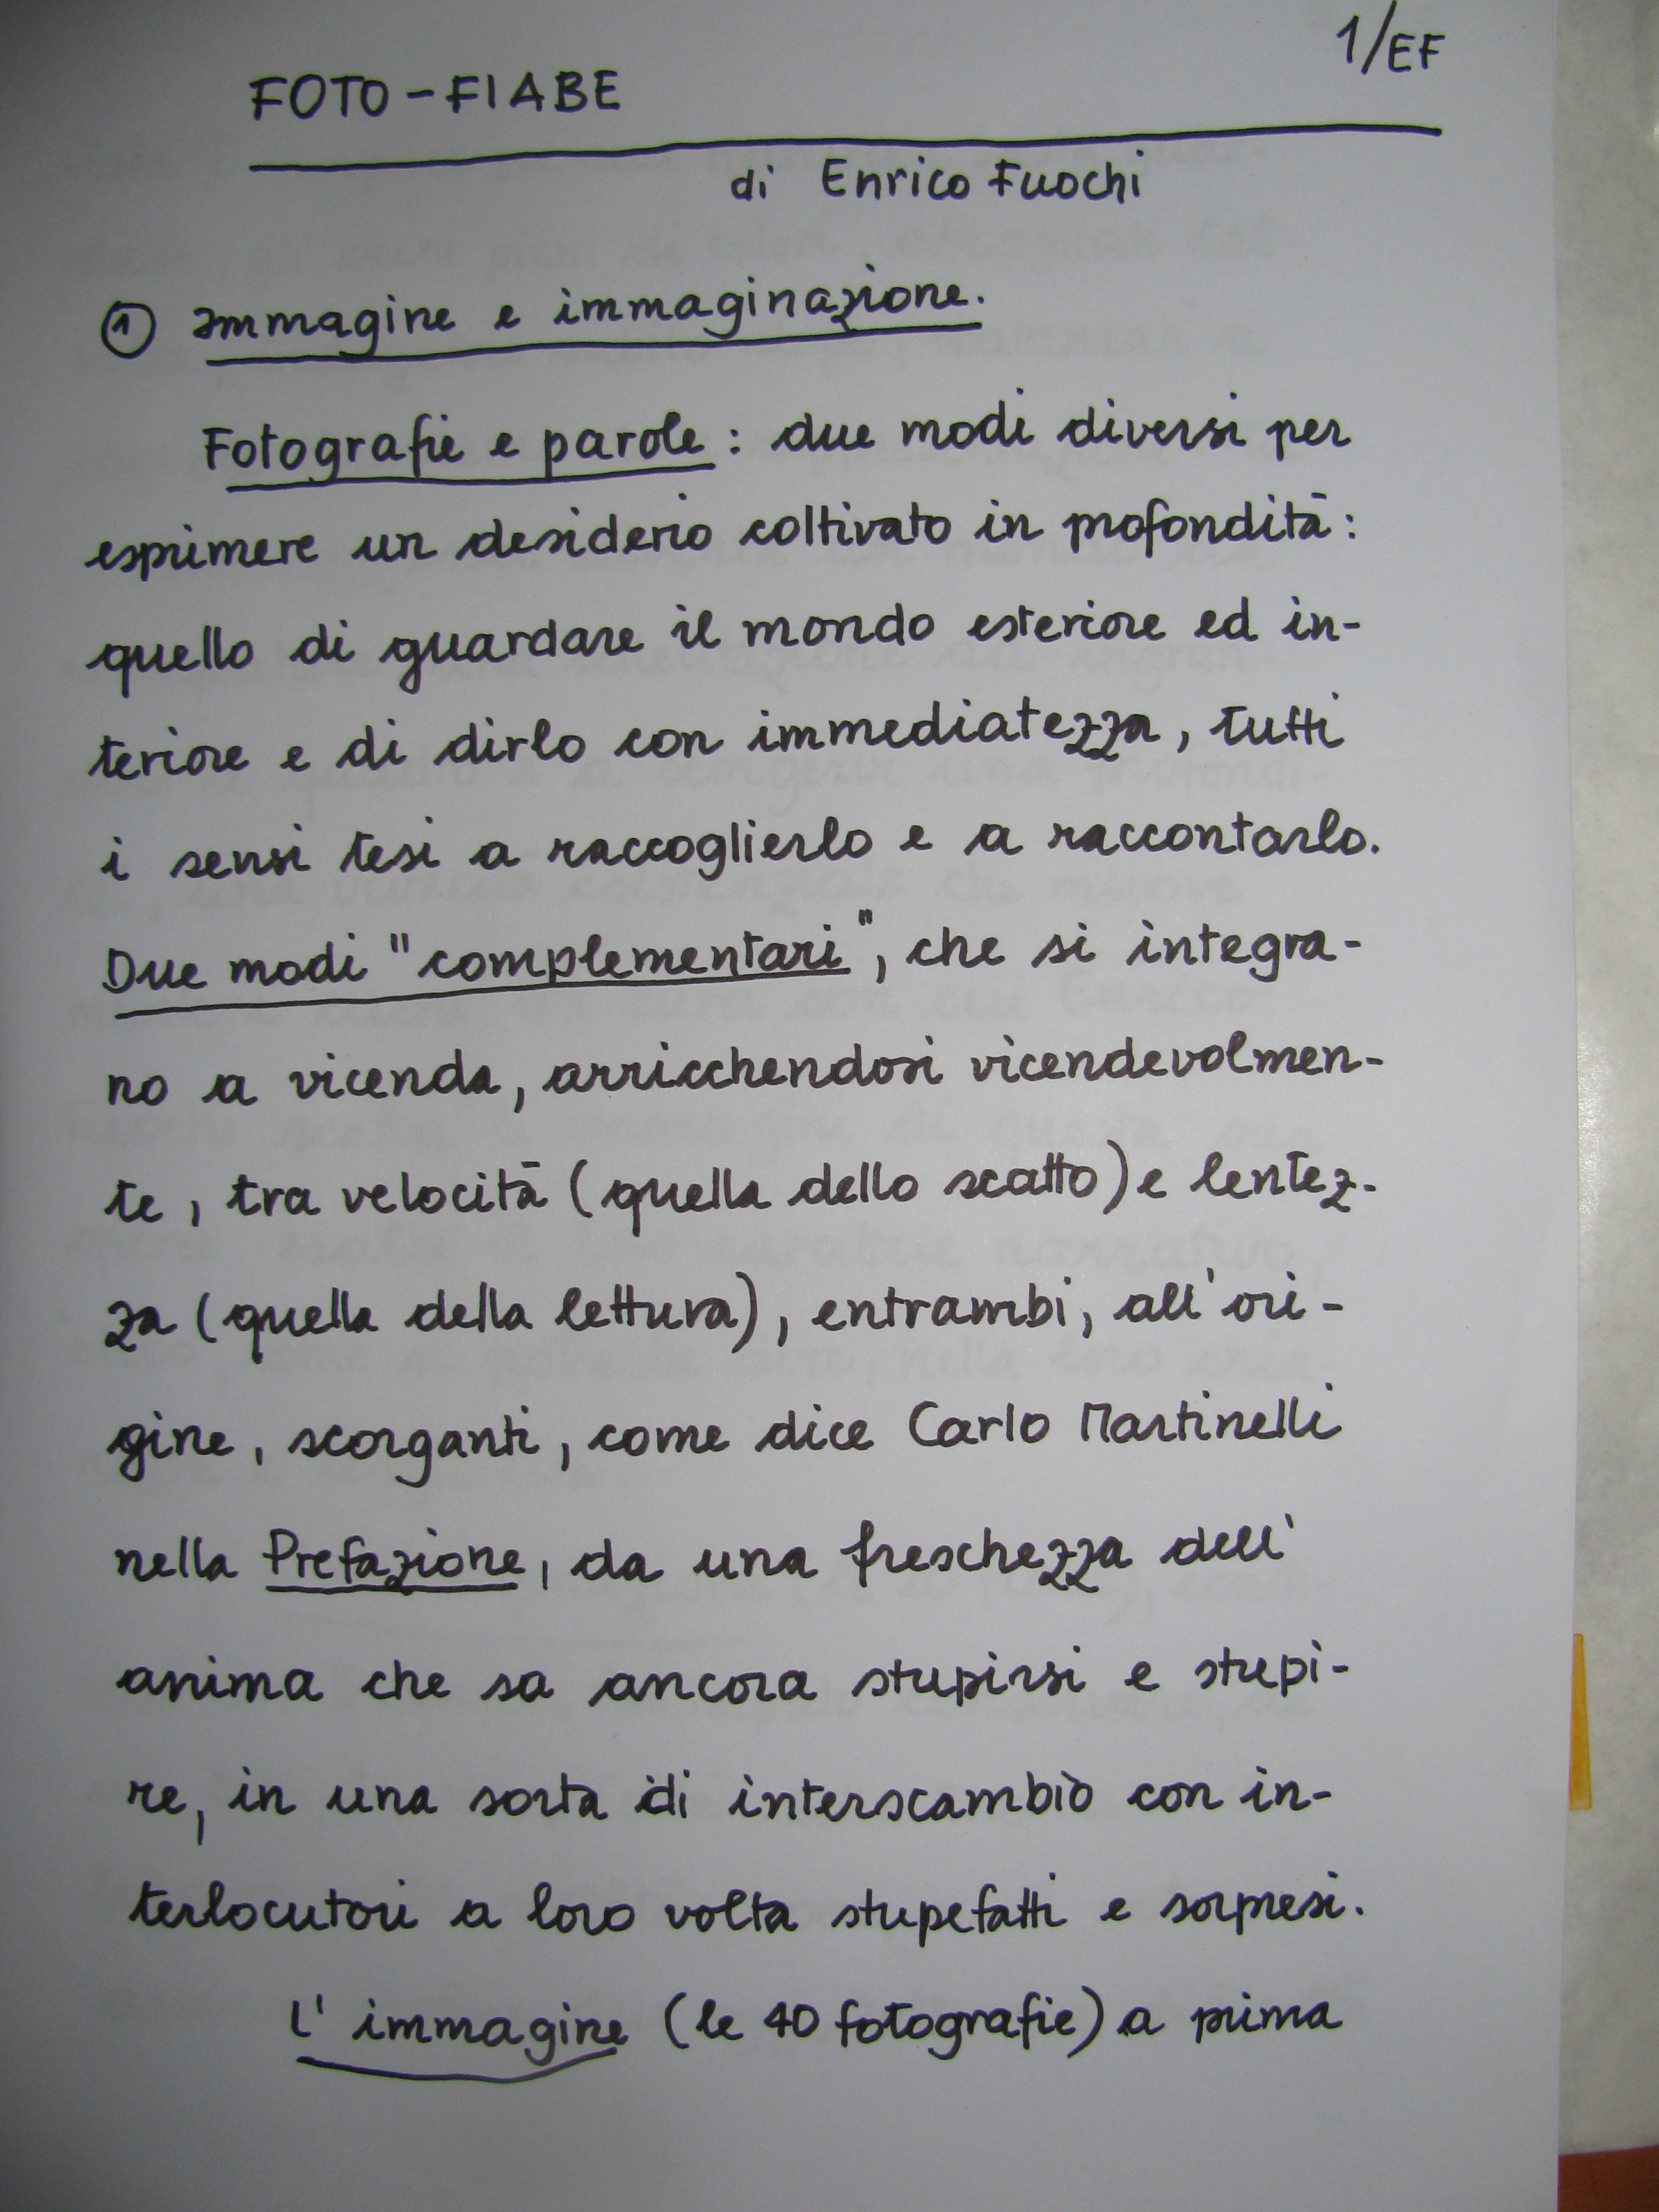 1/EF
FOTO-FIABE
di Enrico Fuochi
1 Immagine e immaginazione.
Fotografie e parole: due modi diversi per
esprimere un desiderio coltivato in profondità:
quello di guardare il mondo esteriore ed in-
teriore e di dirlo con immediatezza, tutti
i sensi tesi a raccoglierlo e a raccontarlo.
Due modi "complementari", che si integra-
no a vicenda, arricchendosi vicendevolmen-
te, tra velocità (quella dello scatto) e lentez-
za (quella della lettura), entrambi, all'ori-
gine, scorganti, come dice Carlo Martinelli
nella Prefazione, da una freschezza dell'
anima che sa ancora stupirsi e stupi-
re, in una sorta di interscambio con in-
terlocutori a loro volta stupefatti e sorpresi.
L'immagine (le 40 fotografie) a prima